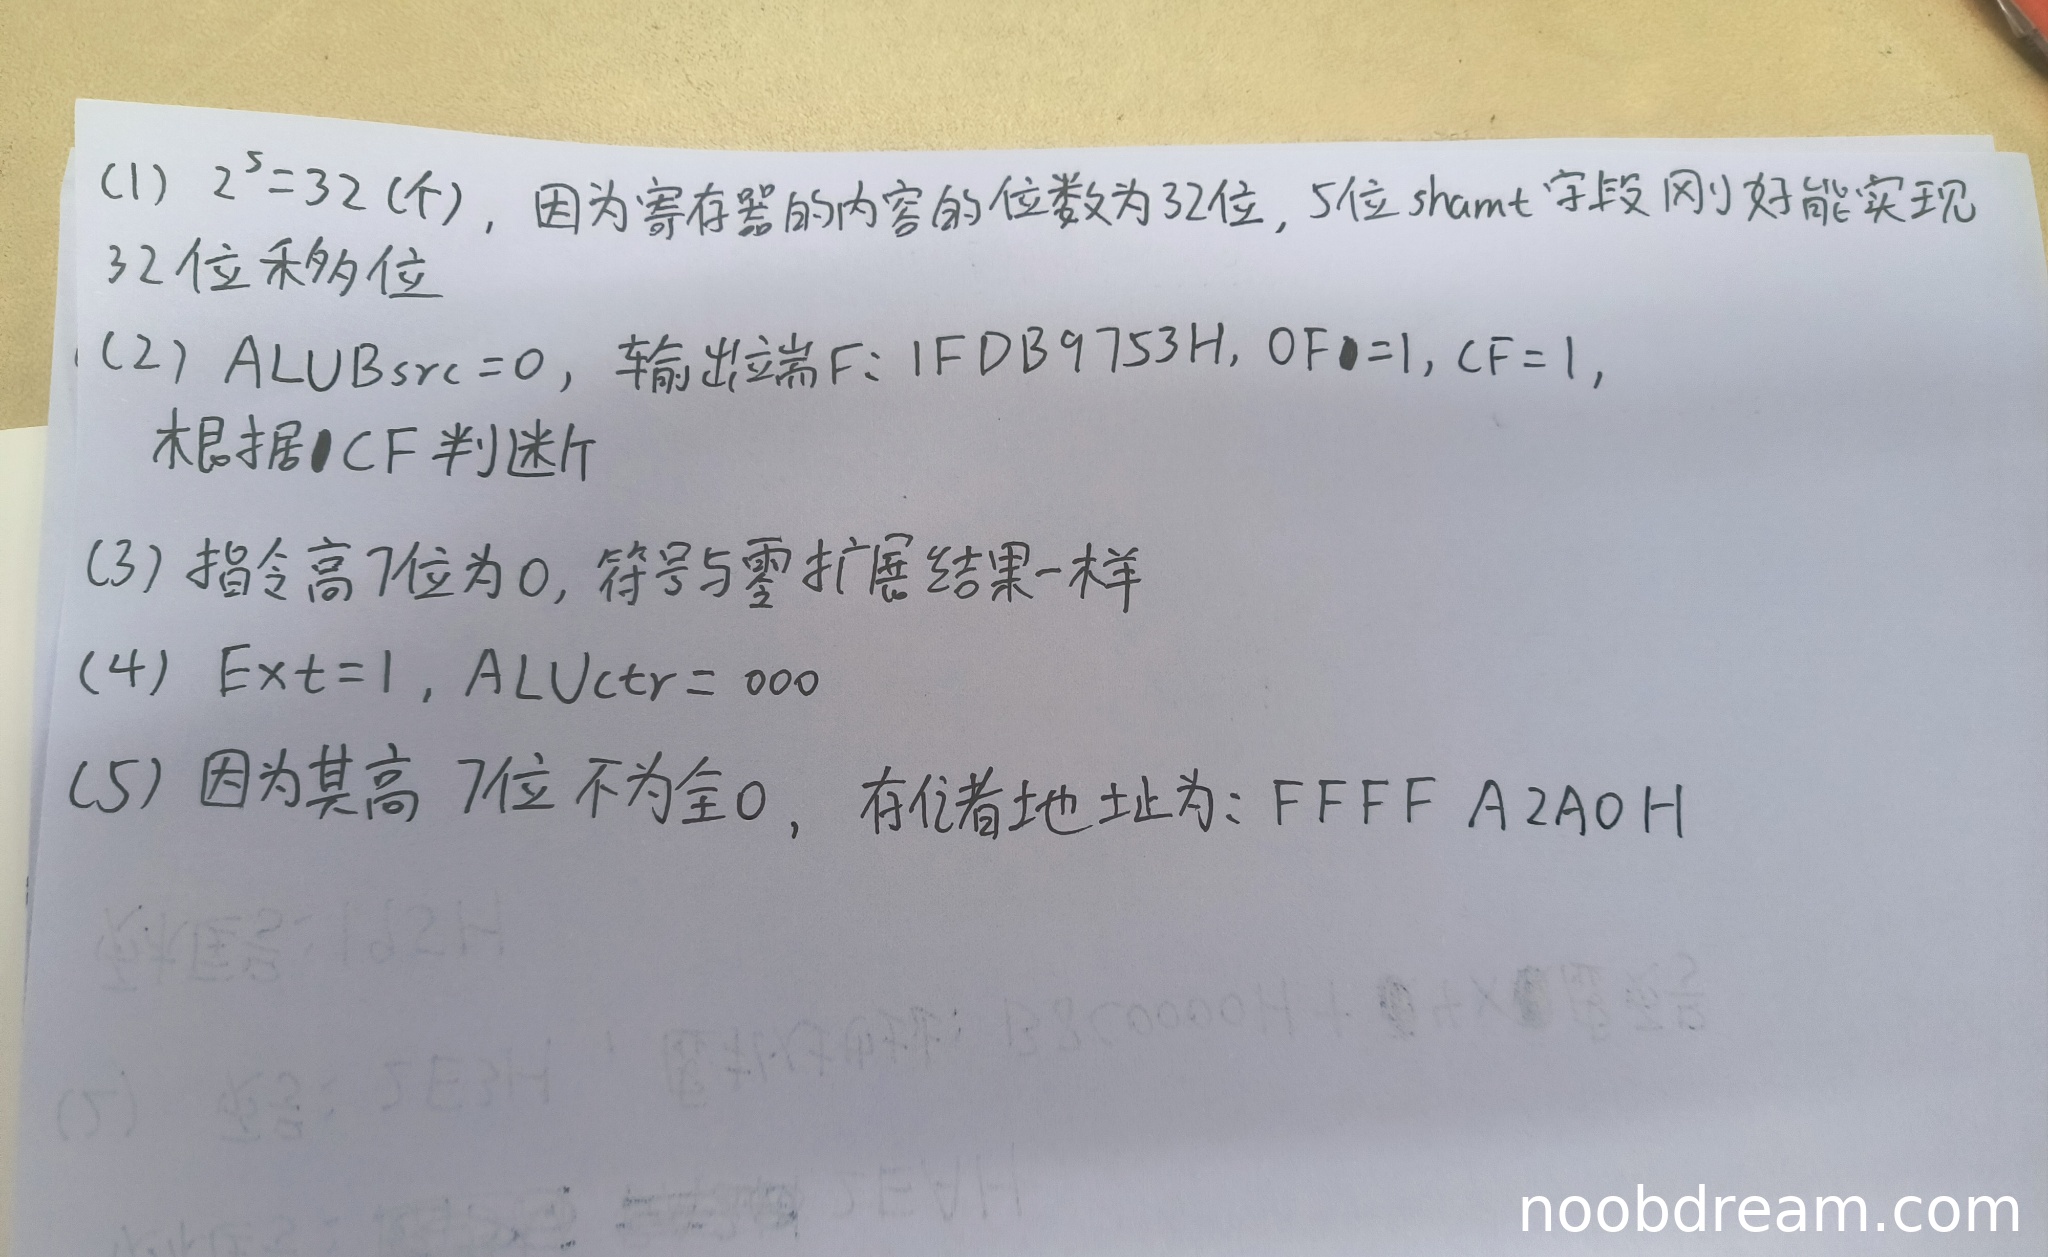 (1) 2⁵=32(个), 因为寄存器的内容的位数为32位, 5位shamt字段刚好能实现
32位移多位
(2) ALUBsrc=0, 输出端F: 1FDB9753H, OF=1, CF=1,
根据CF判断
(3) 指令高7位为0, 符号与零扩展结果一样
(4) Ext=1, ALUctr=000
(5) 因为其高7位不为全0, 存储地址为: FFFF A2A0H
noobdream.com